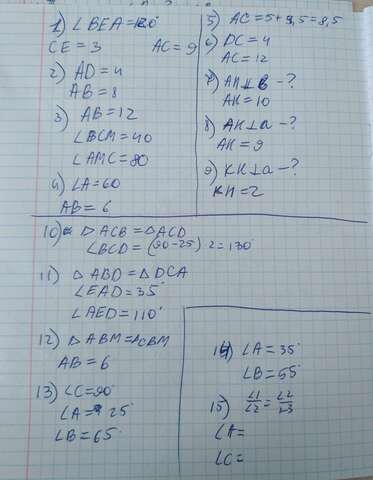 1) ∠BEA=120°
CE=3 AC=9
2) AD=4
AB=8
3) AB=12
∠BCM=40
∠AMC=80
4) ∠A=60
AB=6
5) AC=5+3,5=8,5
6) DC=4
AC=12
7) AH⊥B-?
AK=10
8) AH⊥a-?
AK=9
9) KH⊥a-?
KH=2
10) △ACB=△ACD
∠BCD=(90-25)·2=130°
11) △ABD=△DCA
∠EAD=35°
∠AED=110°
12) △ABM=△CBM
AB=6
13) ∠C=90°
∠A=25°
∠B=65°
14) ∠A=35°
∠B=55°
15) ∠1/∠2=∠2/∠3
∠A=
∠C=